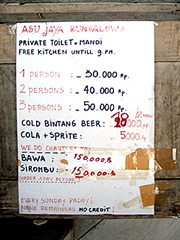 ASU JAYA BUNGALOWS
PRIVATE TOILET + MANDI
FREE KITCHEN UNTILL 9 PM.
1 PERSON : - 30.000 Rp.
2 PERSONS : - 40.000 Rp.
3 PERSONS : - 50.000 Rp.
COLD BINTANG BEER : 18
COLA + SPRITE : 5000
WE DO CHARTER TO:
BAWA : 150.000
SIROMBU : 150.000
ORDER 1 DAY BEFORE
EVERY SUNDAY PAYDAY!
NO CREDIT!